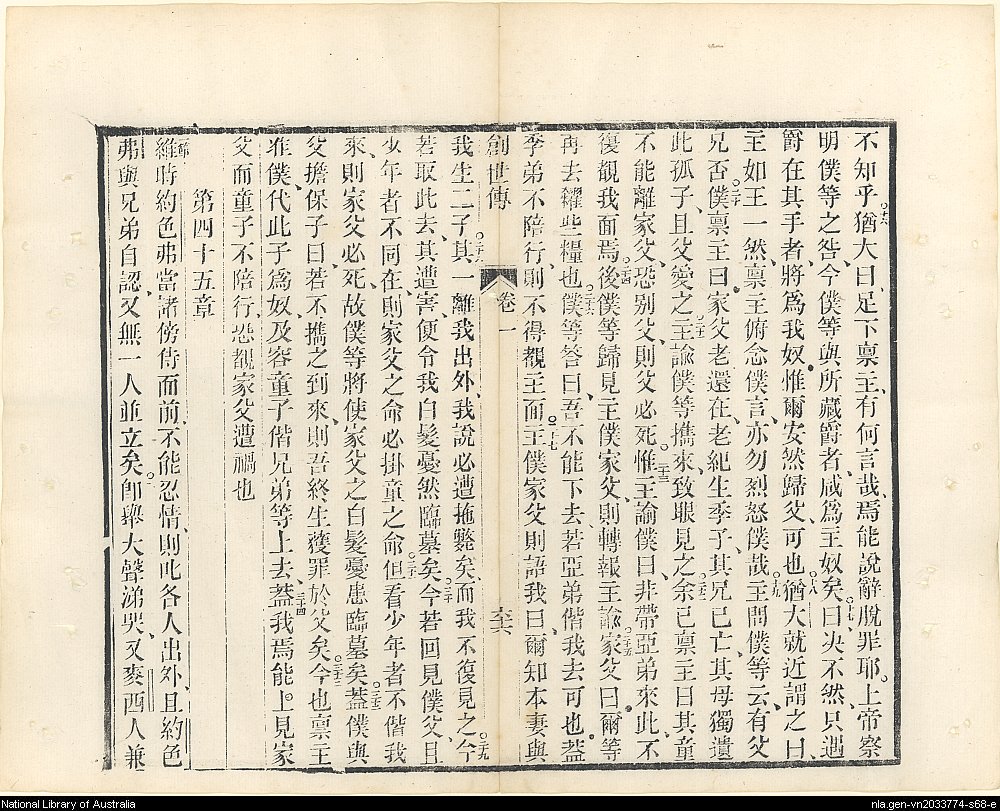 不知乎。十六猶大曰、足下禀主、有何言哉、焉能說辭脫罪耶。上帝察
明僕等之咎、今僕等與所藏爵者、咸爲主奴矣。十七曰、决不然、只遇
爵在其手者、將爲我奴、惟爾安然歸父、可也。十八猶大就近謂之曰、
主如王一然、禀主俯念僕言、亦勿烈怒僕哉。十九主問僕等云、有父
兄否。二十僕禀主曰、家父老還在、老紀生季子、其兄已亡、其母獨遺
此孤子、且父愛之。二十一主諭僕等携來、致眼見之。二十二余已禀主曰、其童
不能離家父、恐别父、則父必死。二十三惟主諭僕曰、非帶亞弟來此、不
復覩我面焉。二十四後僕等歸見主僕家父、則轉報主諭。二十五家父曰、爾等
再去糴些糧也。二十六僕等答曰、吾不能下去、若亞弟偕我去可也、蓋
季弟不陪行、則不得覩主面。二十七主僕家父則語我曰、爾知本妻與
創世傳 卷一 六十六
我生二子。二十八其一離我出外、我說必遭拖斃矣、而我不復見之。二十九今
若取此去、其遭害、便令我白髮憂然臨墓矣。三十今若回見僕父、且
少年者不同在、則家父之命必掛童之命。三十一但看少年者不偕我
來、則家父必死、故僕等將使家父之白髮憂患臨墓矣。三十二蓋僕與
父擔保子曰、若不携之到來、則吾終生獲罪於父矣。三十三今也禀主
准僕、代此子爲奴、及容童子偕兄弟等上去。三十四蓋我焉能上見家
父、而童子不陪行、恐覩家父遭禍也
第四十五章
維時約色弗當諸傍侍面前、不能忍情、則叱各人出外、且約色
弗與兄弟自認、又無一人並立矣。二卽舉大聲涕哭、又麥西人兼